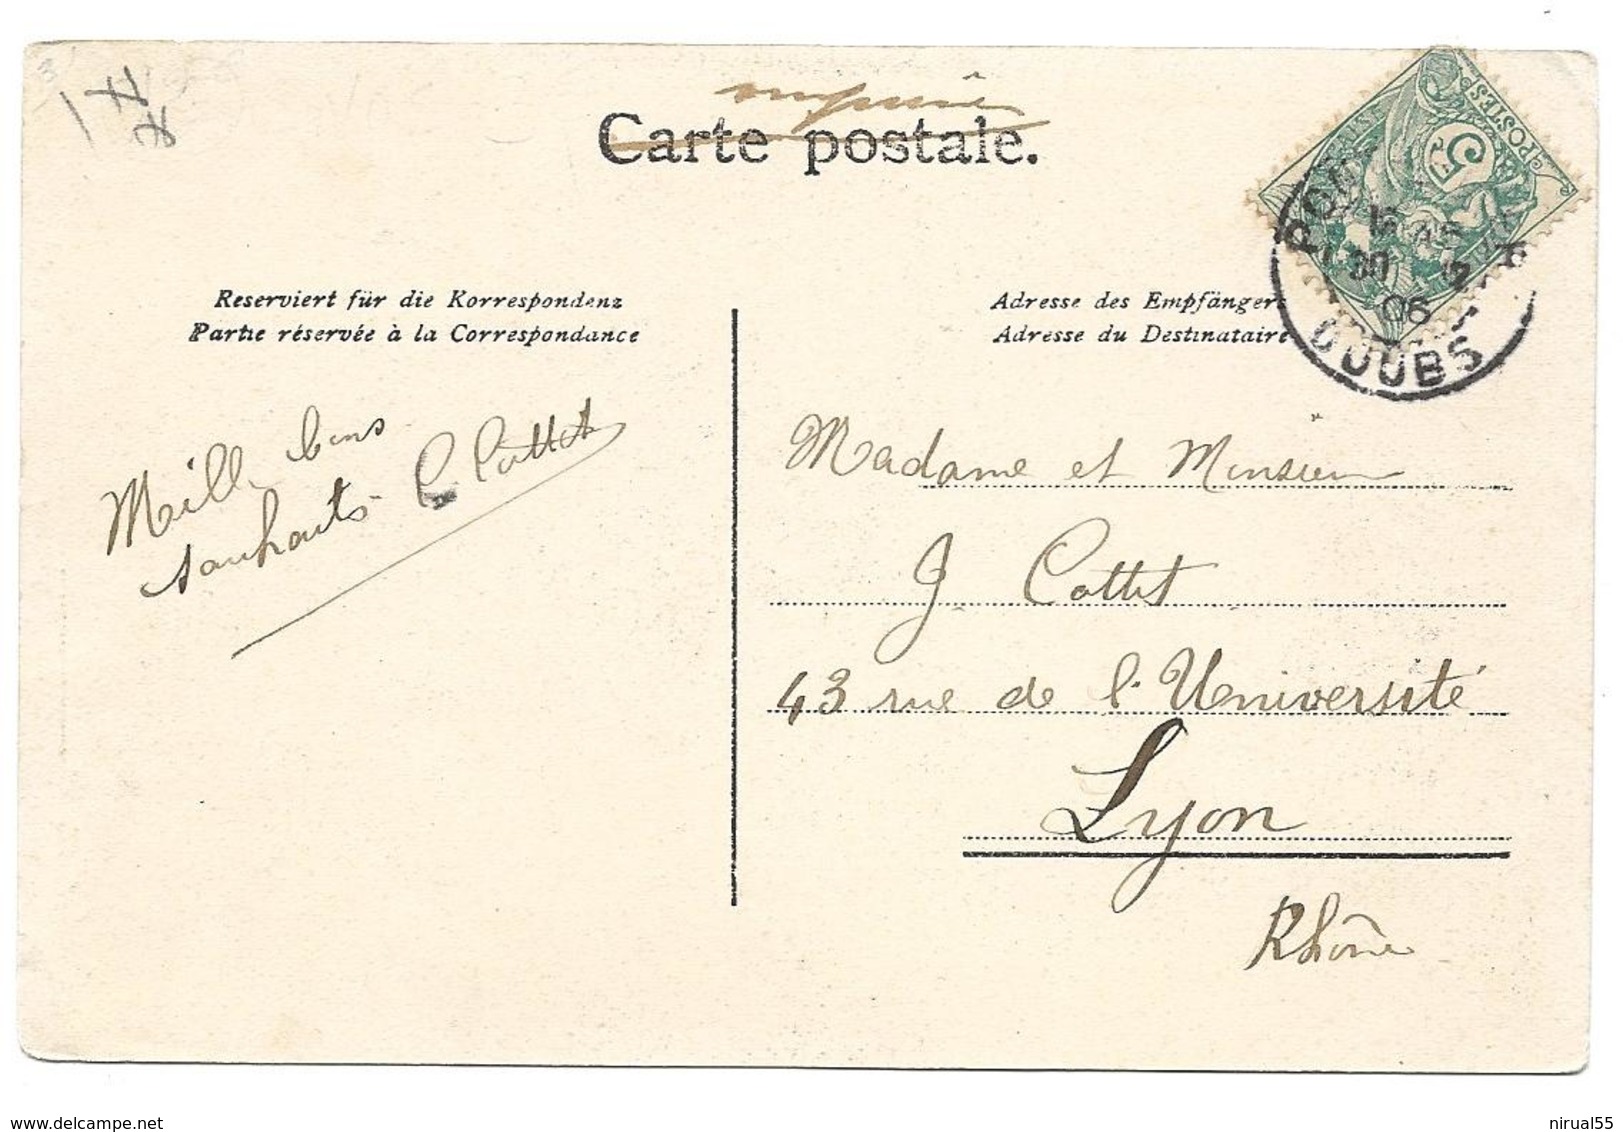 imprimé
Carte postale.
5
POSTES
DOUBS
06
Reserviert für die Korrespondenz
Partie réservée à la Correspondance
Adresse des Empfängers
Adresse du Destinataire
Mille bons
souhaits C. Cottet
Madame et Monsieur
J. Cottet
43 rue de l'Université
Lyon
Rhône
delcampe.net
nirual55